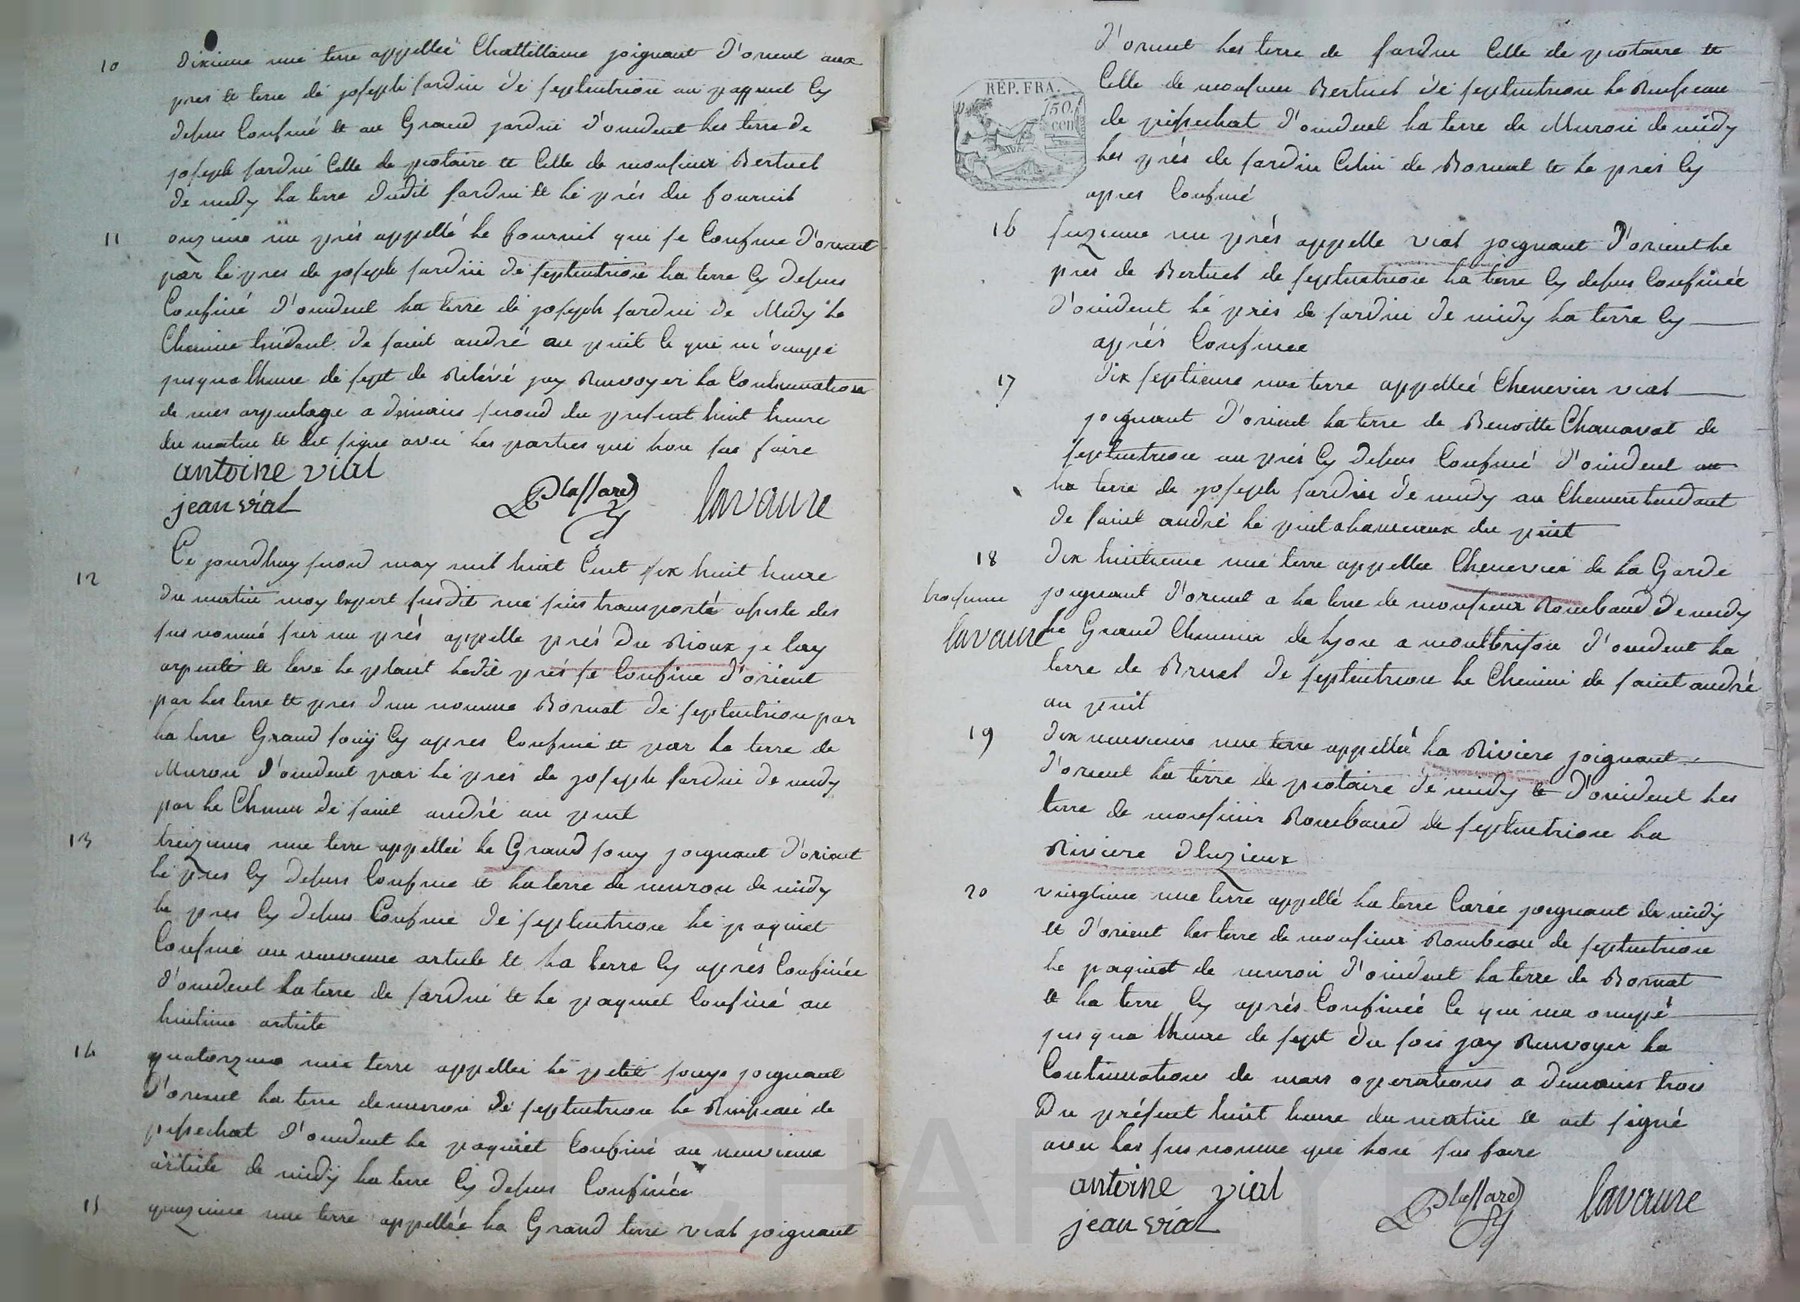 10 dixieme une terre appellée Chattillaine joignant d'orient aux
pres et terre de joseph jardin de septentrion au paquet Cy
depus Confiné et au Grand jardin d'oxident les terre de
joseph jardin Celle de piotaire et Celle de monsieur Bertuel
de midy la terre dudit jardin et le prés du fournil
11 onzieme un prés appellé le fournil qui se Confine d'orient
par le pres de joseph jardin de septentrion la terre Cy depus
Confiné d'oxident la terre de joseph jardin de Midy le
Chemin tendant de saint andré au puit Ce qui m'ocupé
jusqua lheure de sept de Relevé jay Renvoyer la Continuation
de mes arpentage a demain second du present huit heure
du matin et est signé avec les parties qui lon su faire
antoine vial
jean vial Plassard lavaure
12 Ce jourdhuy second may mil huit Cent six huit heure
du matin moy Expert susdit me suis transporté assisté des
sus nommé sur un prés appelle prés du Rioux je lay
arpenté et levé le plant ledit prés se Confine d'orient
par les terre et pres d'un nomme Bornat de septentrion par
la terre Grand souy Cy apres Confiné et par la terre de
Muron d'oxident par le prés de joseph jardin de midy
par le Chemin de saint andré au puit
13 treizieme une terre appellée le Grand souy joignant d'orient
le pres Cy depus Confiné et la terre de muron de midy
le pres Cy depus Confiné de septentrion le paquiet
Confiné au neuvieme article et la terre Cy aprés Confinée
d'oxident la terre de jardin et le paquiet Confiné au
huitieme article
14 quatorzieme une terre appellée le petit souys joignant
d'orient la terre de muron de septentrion le Ruisseau de
pissechat d'oxident le paquiet Confiné au neuvieme
article de midy la terre Cy depus Confinée
15 quinzieme une terre appellée la Grand terre vial joignant
d'orient les terre de jardin Celle de piotaire et
REP. FRA.
50
cen
Celle de monsieur Bertuel de septentrion le Ruisseau
de pissechat d'oxident la terre de Muron de midy
les prés de jardin Celui de Bornat et le pres Cy
apres Confiné
16 seizieme un prés appelle vial joignant d'orient le
pres de Bertuel de septentrion la terre Cy depus Confinée
d'oxident le prés de jardin de midy la terre Cy
aprés Confinee
17 dix septieme une terre appelleé Chenevier vial
joignant d'orient la terre de Benoitte Chanavat de
septentrion au prés Cy depus Confiné d'oxident au
la terre de joseph jardin de midy au Chemin tendant
de saint andré le puit a hauteur du puit
18 dix huitieme une terre appellee Chenevier de la Garde
joignant d'orient a la terre de monsieur Rombaud de midy
lavaure
le Grand Chemin de lyon a montbrison d'oxident la
terre de Bruel de septentrion le Chemin de saint andré
au puit
19 dix neuvieme une terre appelleé la Riviere joignant
d'orient la terre de piotaire de midy et d'oxident les
terre de monsieur Rombaud de septentrion la
Riviere dluzieux
20 vingtieme une terre appellé la terre Carée joignant de midy
et d'orient les terre de monsieur Rombeau de septentrion
le paquet de muron d'oxident la terre de Bornat
et la terre Cy aprés Confineé Ce qui ma ocupé
jusqua lheure de sept du soir jay Renvoyer la
Continuation de mais operations a demain trois
Du présent huit heure du matin et est signé
avec les sus nomme qui lon su faire
antoine vial
jean vial Plassard lavaure